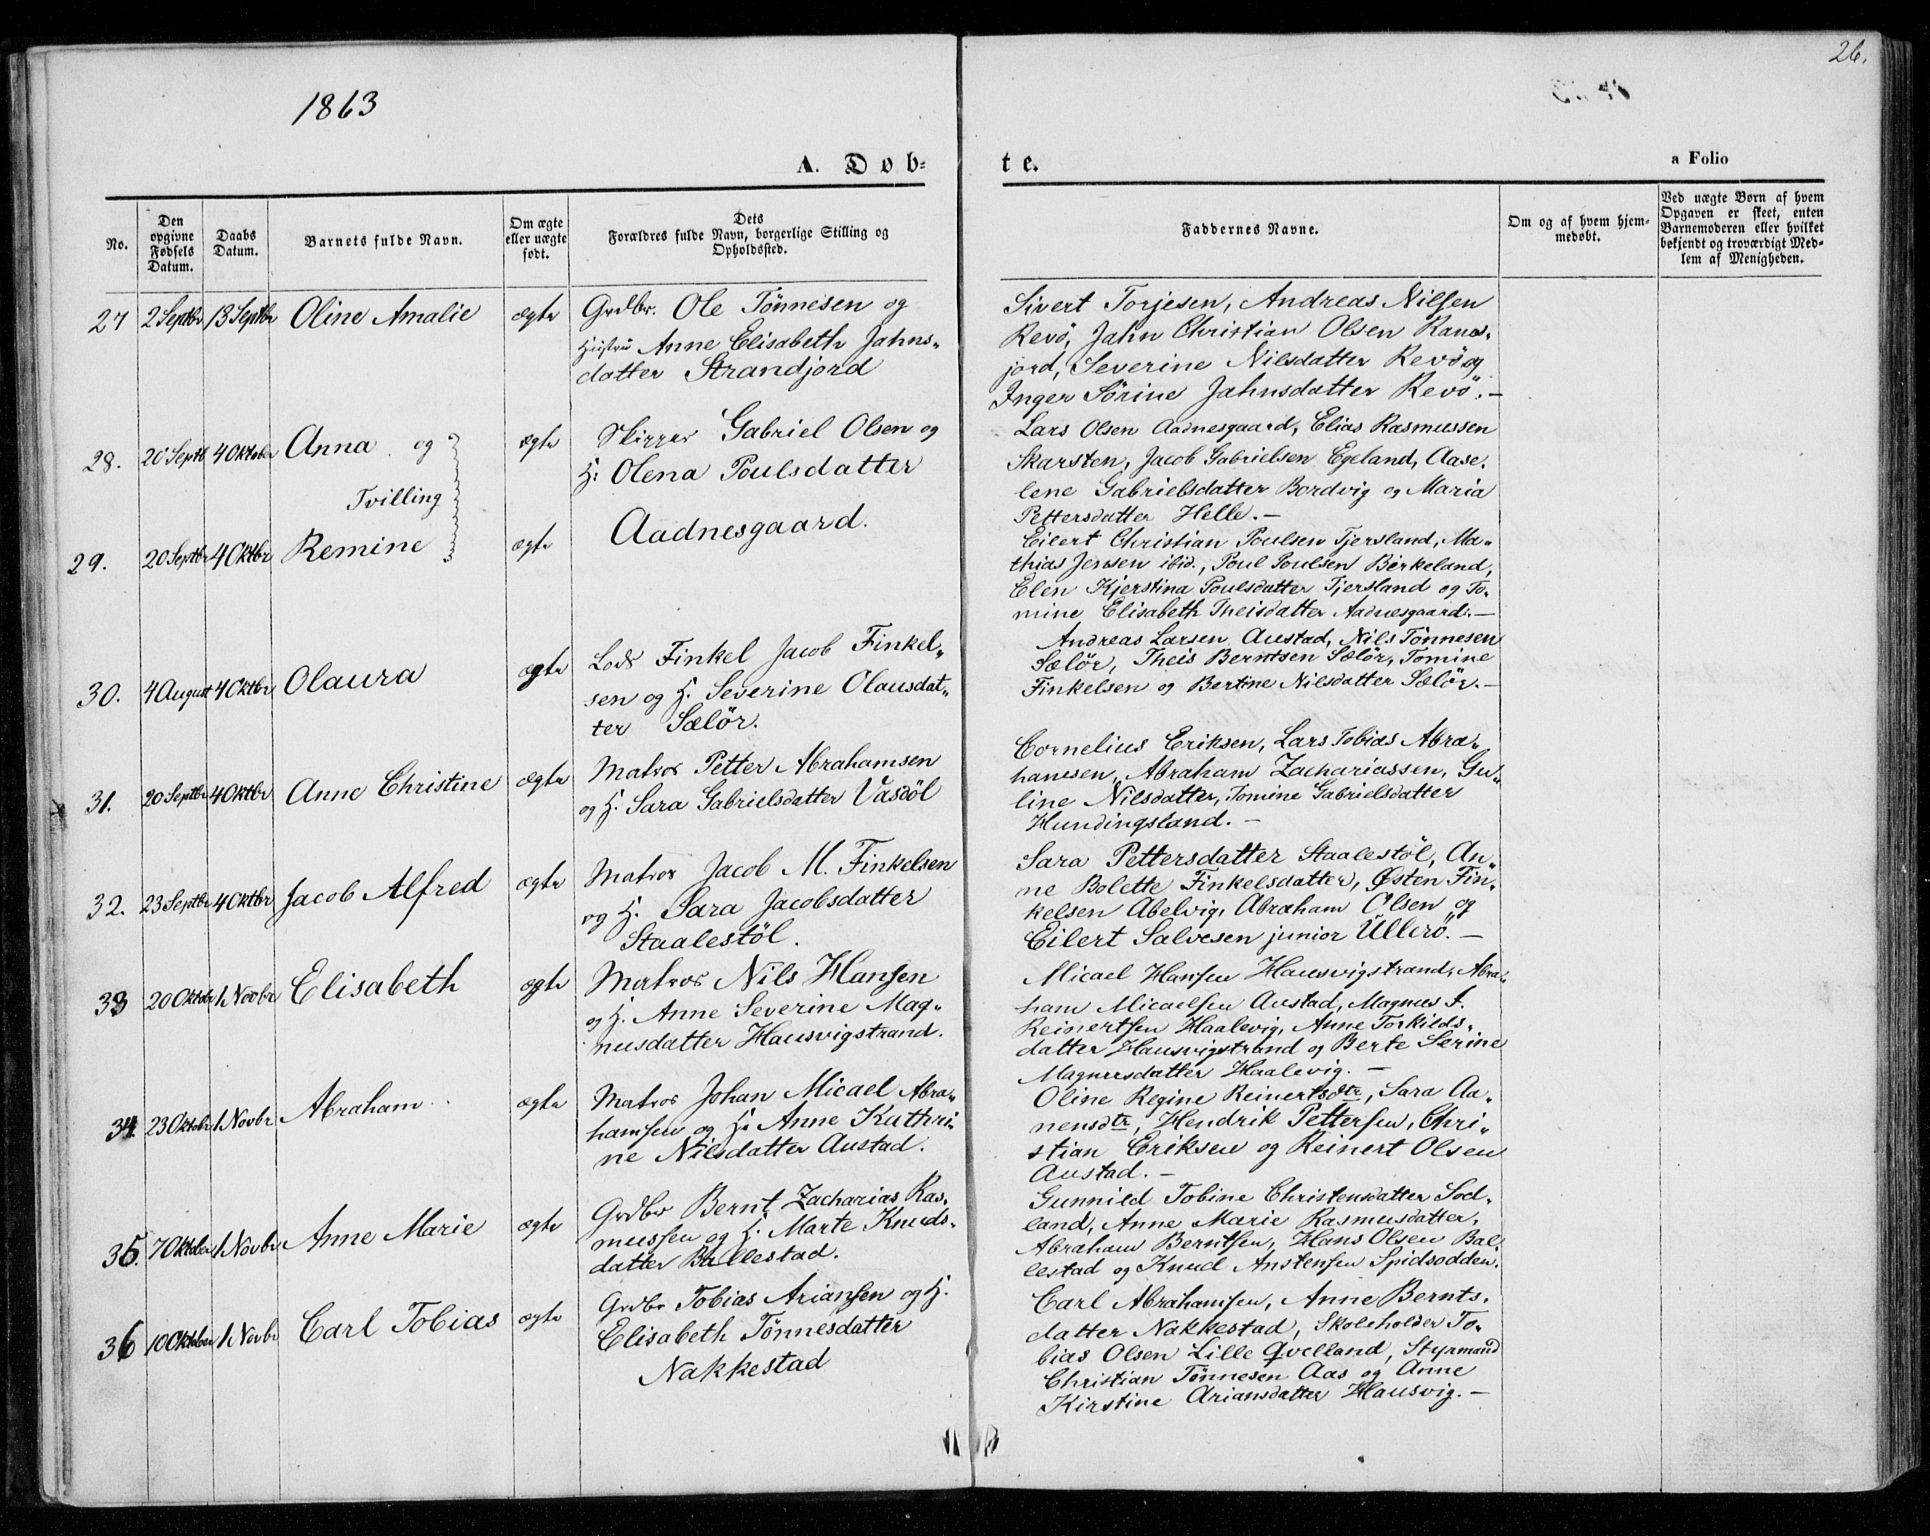 26.
1863
A. Døb-
te.
a Folio
No.
Den opgivne Fødsels Datum.
Daabs Datum.
Barnets fulde Navn.
Om ægte eller uægte født.
Dets Forældres fulde Navn, borgerlige Stilling og Opholdssted.
Faddernes Navne.
Om og af hvem hjemmedøbt.
Ved uægte Børn af hvem Opgaven er skeet, enten Barnemoderen eller hvilket bekjendt og troværdigt Medlem af Menigheden.
27 2 Septbr 13 Septbr Oline Amalie ægte Grdbr. Ole Tönnesen og
Hustru Anne Elisabeth Jahns-
datter Strandjord
Sivert Torjesen, Andreas Nilsen
Revö, Jahn Christian Olsen Rans-
jord, Severine Nilsdatter Revö og
Inger Sörine Jahnsdatter Revö. -
28. 20 Septb 4 Oktober Anna og ægte Skipper Gabriel Olsen og
H: Olena Poulsdatter
Tvilling
Aadnesgaard.
Lars Olsen Aadnesgaard, Elias Rasmussen
Skarsten, Jacob Gabrielsen Egeland, Aase-
lene Gabrielsdatter Bordvig og Maria
Pettersdatter Helle. -
29. 20 Septbr 4 Oktbr Remine ægte
Eilert Christian Poulsen Tjersland, Ma-
thias Jensen ibid., Poul Poulsen Birkeland,
Elen Kjerstina Poulsdatter Tjersland og To-
mine Elisabeth Theisdatter Aadnesgaard. -
30. 4 August 4 Oktbr Olaura ægte Lods Finkel Jacob Finkel-
sen og H. Severine Olausdat-
ter Sælör.
Andreas Larsen Austad, Nils Tönnesen
Sælör, Theis Berntsen Sælör, Tomine
Finkelsen og Bertine Nilsdatter Sælör. -
31. 20 Septbr 4 Oktbr Anne Christine ægte Matros Petter Abrahamsen
og H. Sara Gabrielsdatter Vasböl
Cornelius Eriksen, Lars Tobias Abra-
hamsen, Abraham Zachariassen, Gu-
line Nilsdatter, Tomine Gabrielsdatter
Hundingsland. -
32. 23 Septbr 4 Oktbr Jacob Alfred ægte Matros Jacob M. Finkelsen
og H. Sara Jacobsdatter
Staalestöl.
Sara Pettersdatter Staalestöl, An-
ne Bolette Finkelsdatter, Østen Fin-
kelsen Abelvig, Abraham Olsen og
Eilert Salvesen junior Ullerö. -
33 20 Oktbr 1 Novbr Elisabeth ægte Matros Nils Hansen
og H. Anne Severine Mag-
nusdatter Hausvigstrand.
Micael Hansen Hausvigstrand, Abra-
ham Micaelsen Austad, Magnus I.
Reinertsen Haalevig, Anne Torkilds-
datter Hausvigstrand og Berte Serine
Magnusdatter Haalevig. -
34. 23 Oktbr 1 Novbr Abraham ægte Matros Johan Micael Abra-
hamsen og H. Anne Kathri-
ne Nilsdatter Austad.
Oline Regine Reinertsdtr, Sara Aa-
nensdtr, Hendrik Pettersen, Chri-
stian Eriksen og Reinert Olsen
Austad. -
35. 7 Oktober 1 Novbr Anne Marie ægte Grdbr Bernt Zacharias Ras-
mussen og H. Marte Knuds-
datter Ballestad.
Gunnild Tobine Christensdatter Sod-
land, Anne Marie Rasmusdatter,
Abraham Berntsen, Hans Olsen Bal-
lestad og Knud Anstensen Spidsodden.
36 10 Oktbr 1 Novbr Carl Tobias ægte Grdbr Tobias Ariansen og H.
Elisabeth Tönnesdatter
Nakkestad
Carl Abrahamsen, Anne Bernts-
datter Nakkestad, Skoleholder To-
bias Olsen Lille Qvelland, Styrmand
Christian Tönnesen Aas og Anne
Kirstine Ariansdatter Hausvig. -